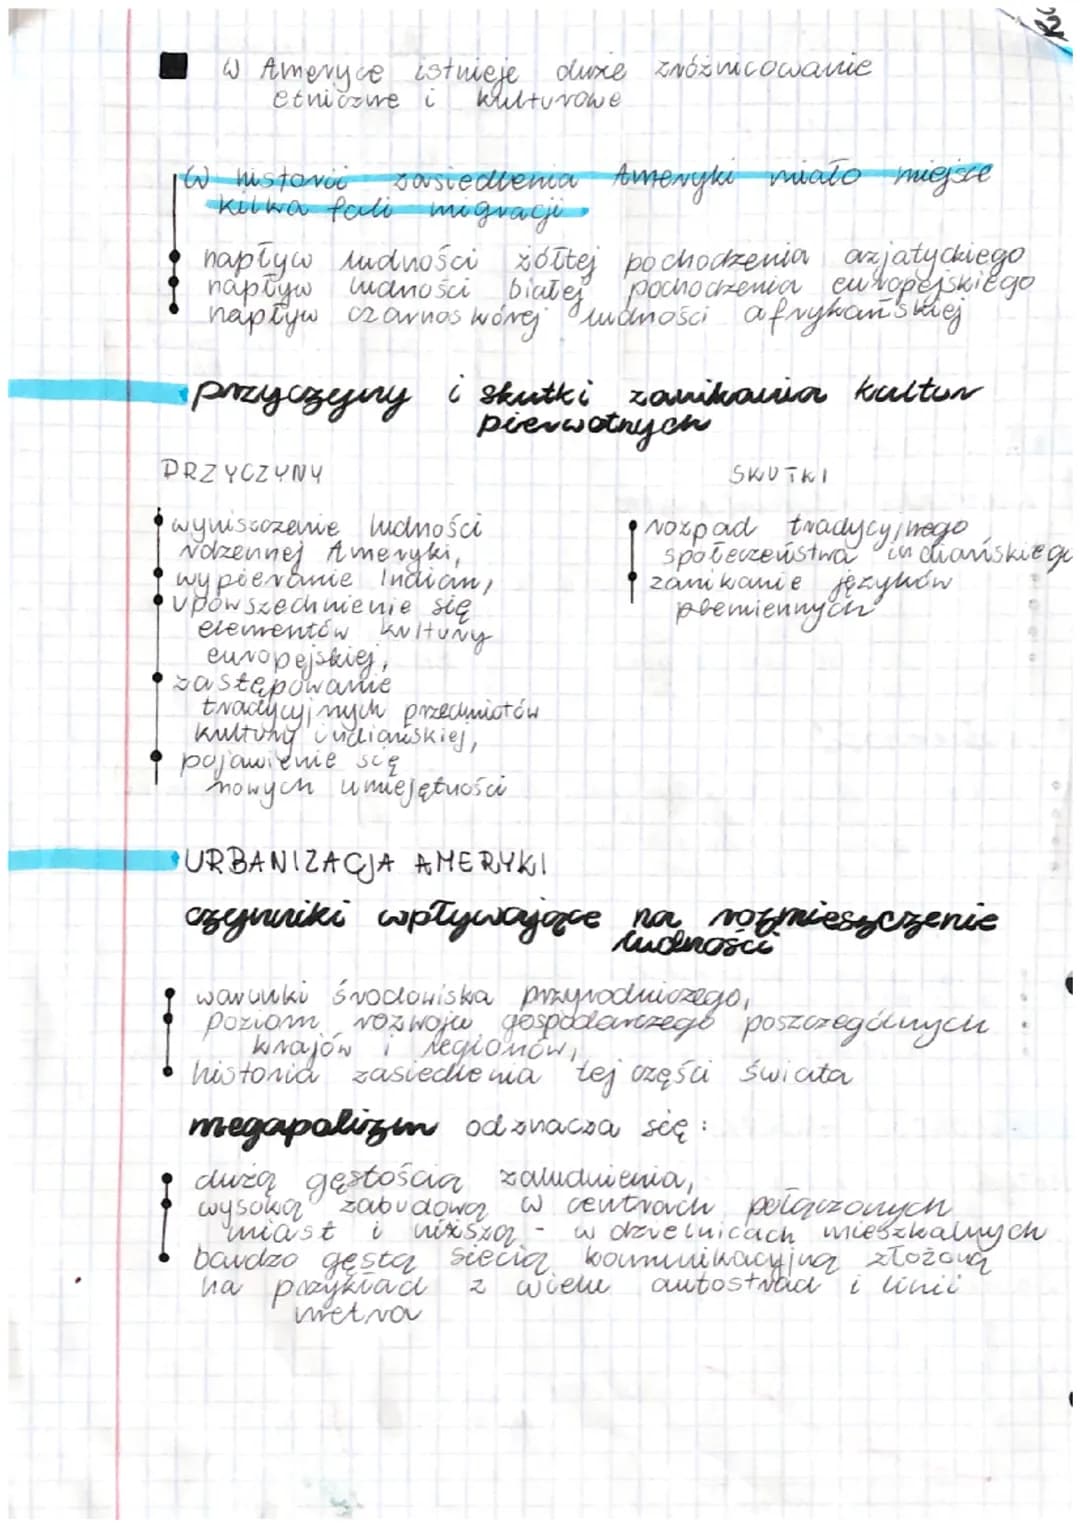 W Ameryce istnieje duże zróżnicowanie
etniczne i kulturowe
W historii zasiedlenia Ameryki miało miejsce
kilka fali migracji
napływ ludności żółtej pochodzenia azjatyckiego
napływ ludności białej pochodzenia europejskiego
napływ czarnoskórej ludności afrykańskiej
przyczyny i skutki zanikania kultur
pierwotnych
PRZYCZYNY
wyniszczenie ludności
rdzennej Ameryki,
wypieranie Indian,
upowszechnienie się
elementów kultury
europejskiej,
zastępowanie
tradycyjnych przedmiotów
kultury indiańskiej,
pojawienie się
nowych umiejętności
SKUTKI
rozpad tradycyjnego
społeczeństwa indiańskiego
zanikanie języków
plemiennych
URBANIZACJA AMERYKI
czynniki wpływające na rozmieszczenie
ludności
warunki środowiska przyrodniczego,
poziom rozwoju gospodarczego poszczególnych
krajów i regionów,
historia zasiedlenia tej części świata
megapolizm odznacza się:
dużą gęstością zaludnienia,
wysoką zabudową w centrach połączonych
miast i niższą - w dzielnicach mieszkalnych
bardzo gęstą siecią komunikacyjną złożoną
na przykład z wielu autostrad i linii
metra